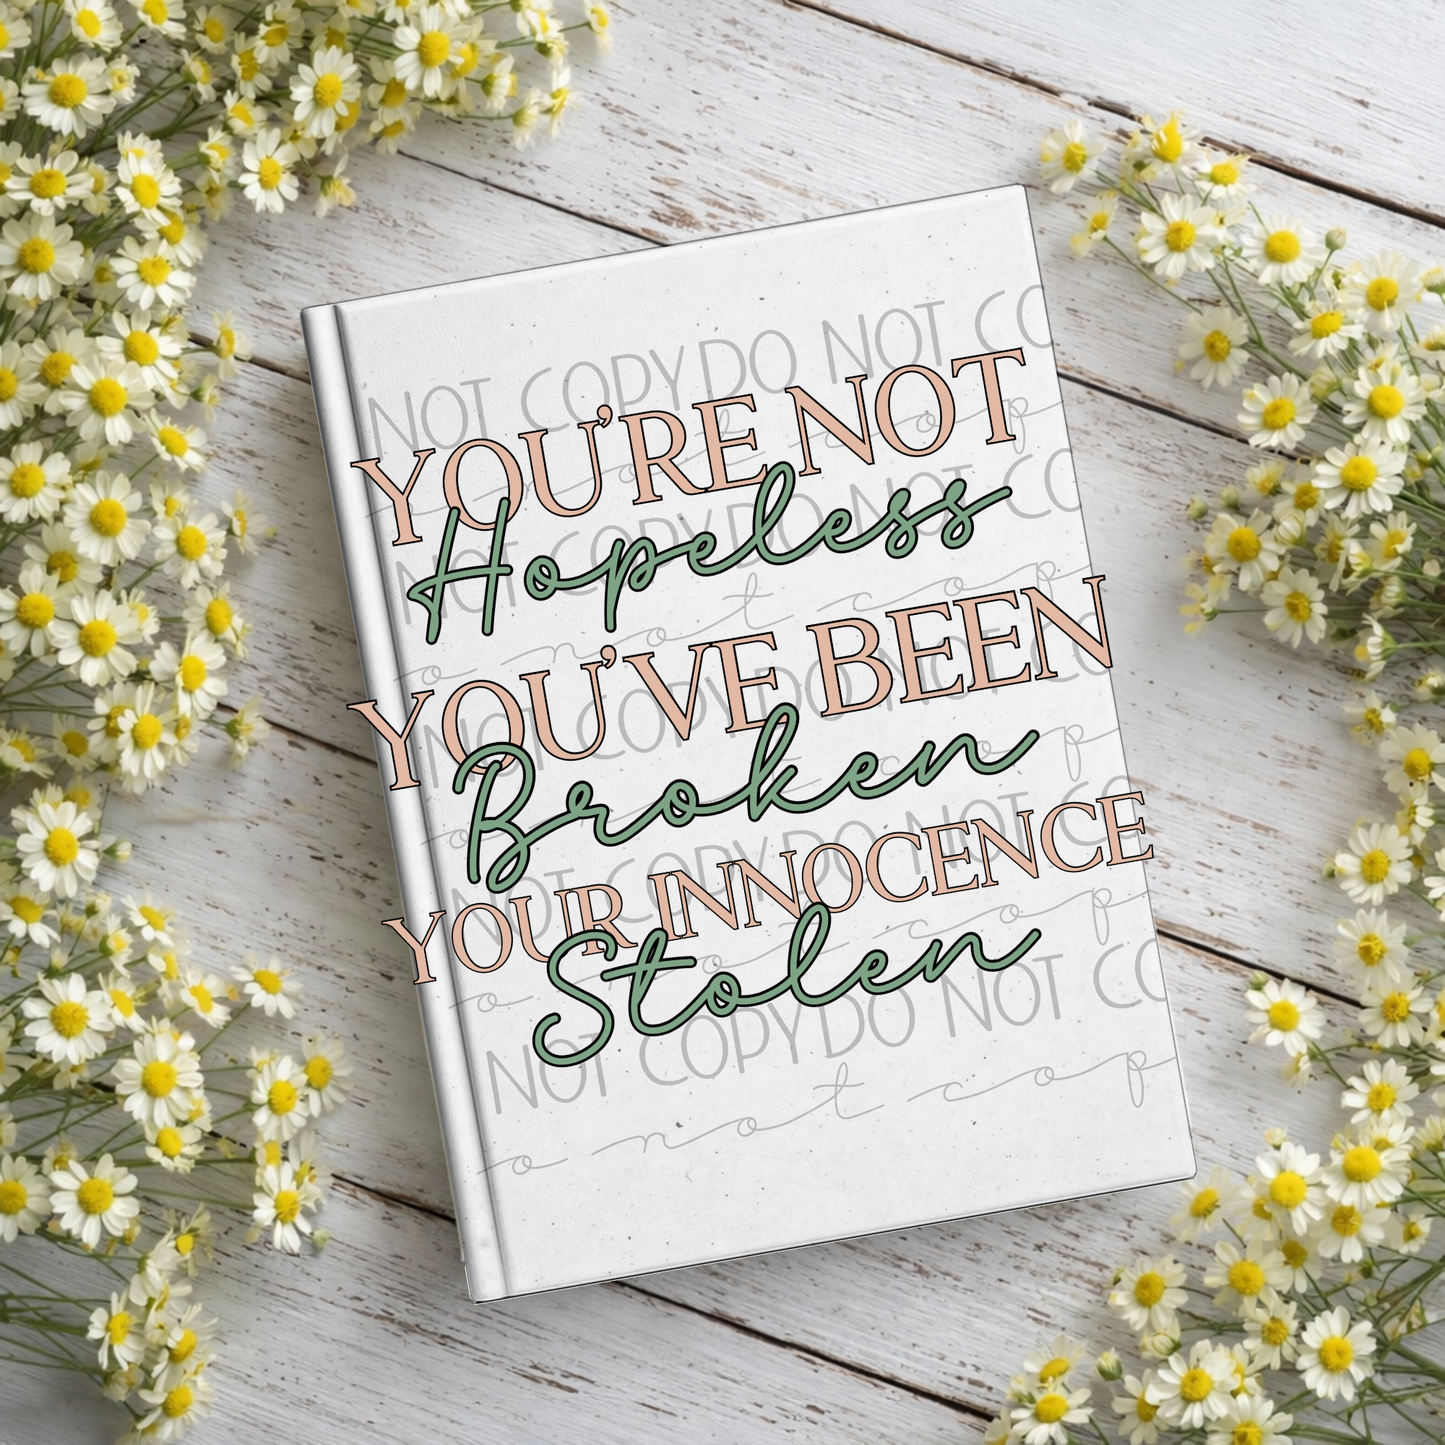 NOT COPY DO NOT CO
YOU'RE NOT
not cop
NOT COPY DO NOT CO
Hopeless
o not cop
YOU'VE BEEN
NOT COPY DO NOT CO
Broken
o not cop
NOT COPY DO NOT CO
YOUR INNOCENCE
Stolen
o not cop
NOT COPY DO NOT CO
o not cop